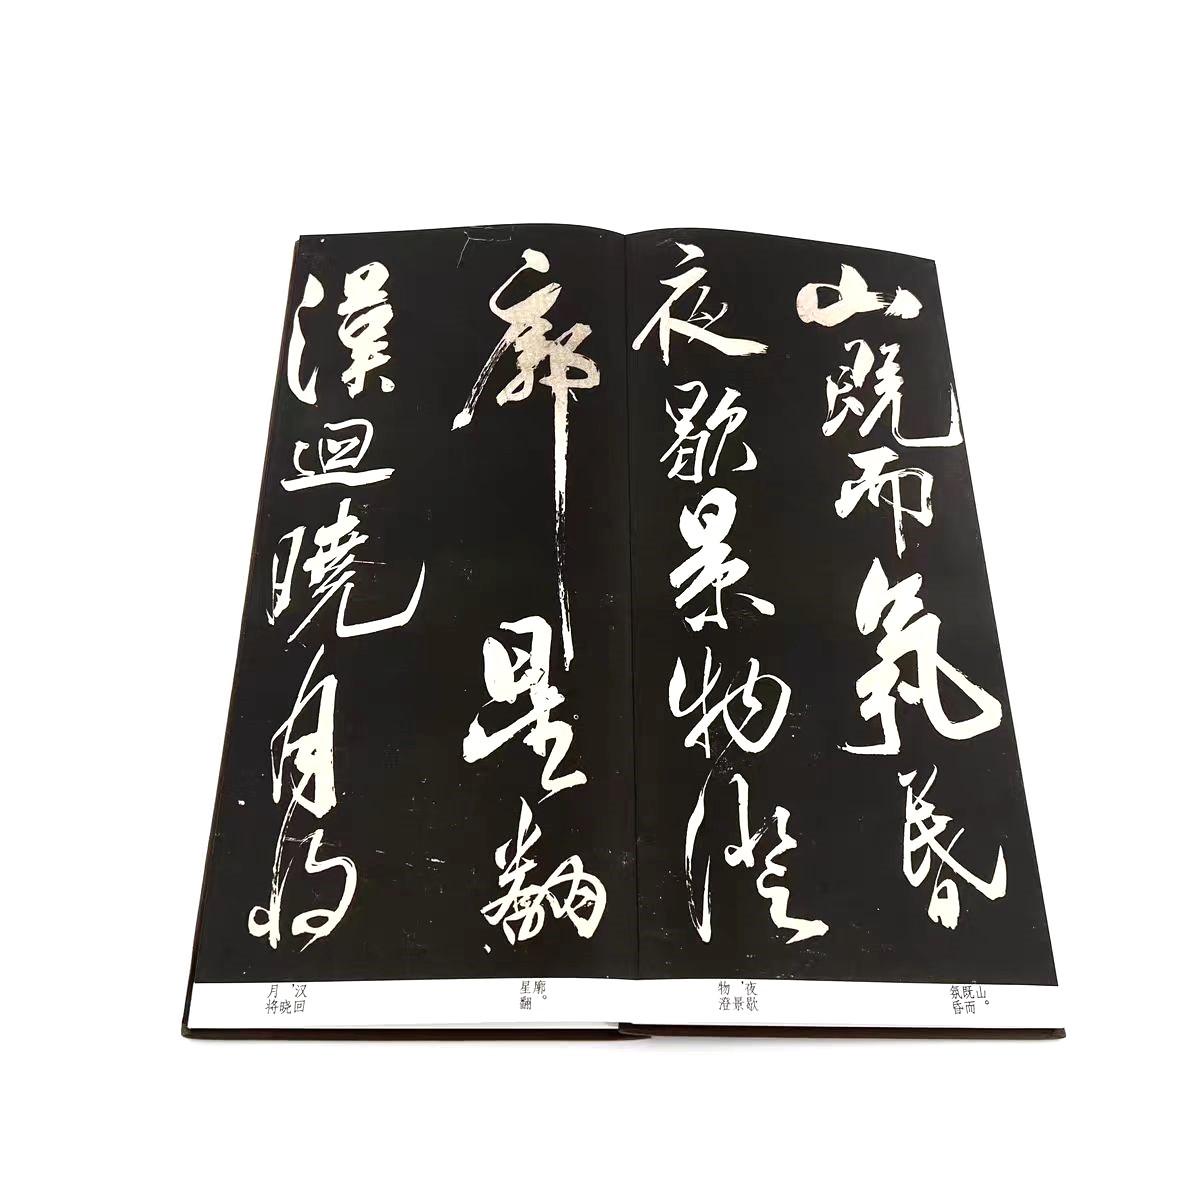 山既而氛昏
夜歇景物澄
廓星翻
漢迴曉月将
山。
既而
氛昏
夜歇
，景
物澄
廓。
星翻
汉回
，晓
月将